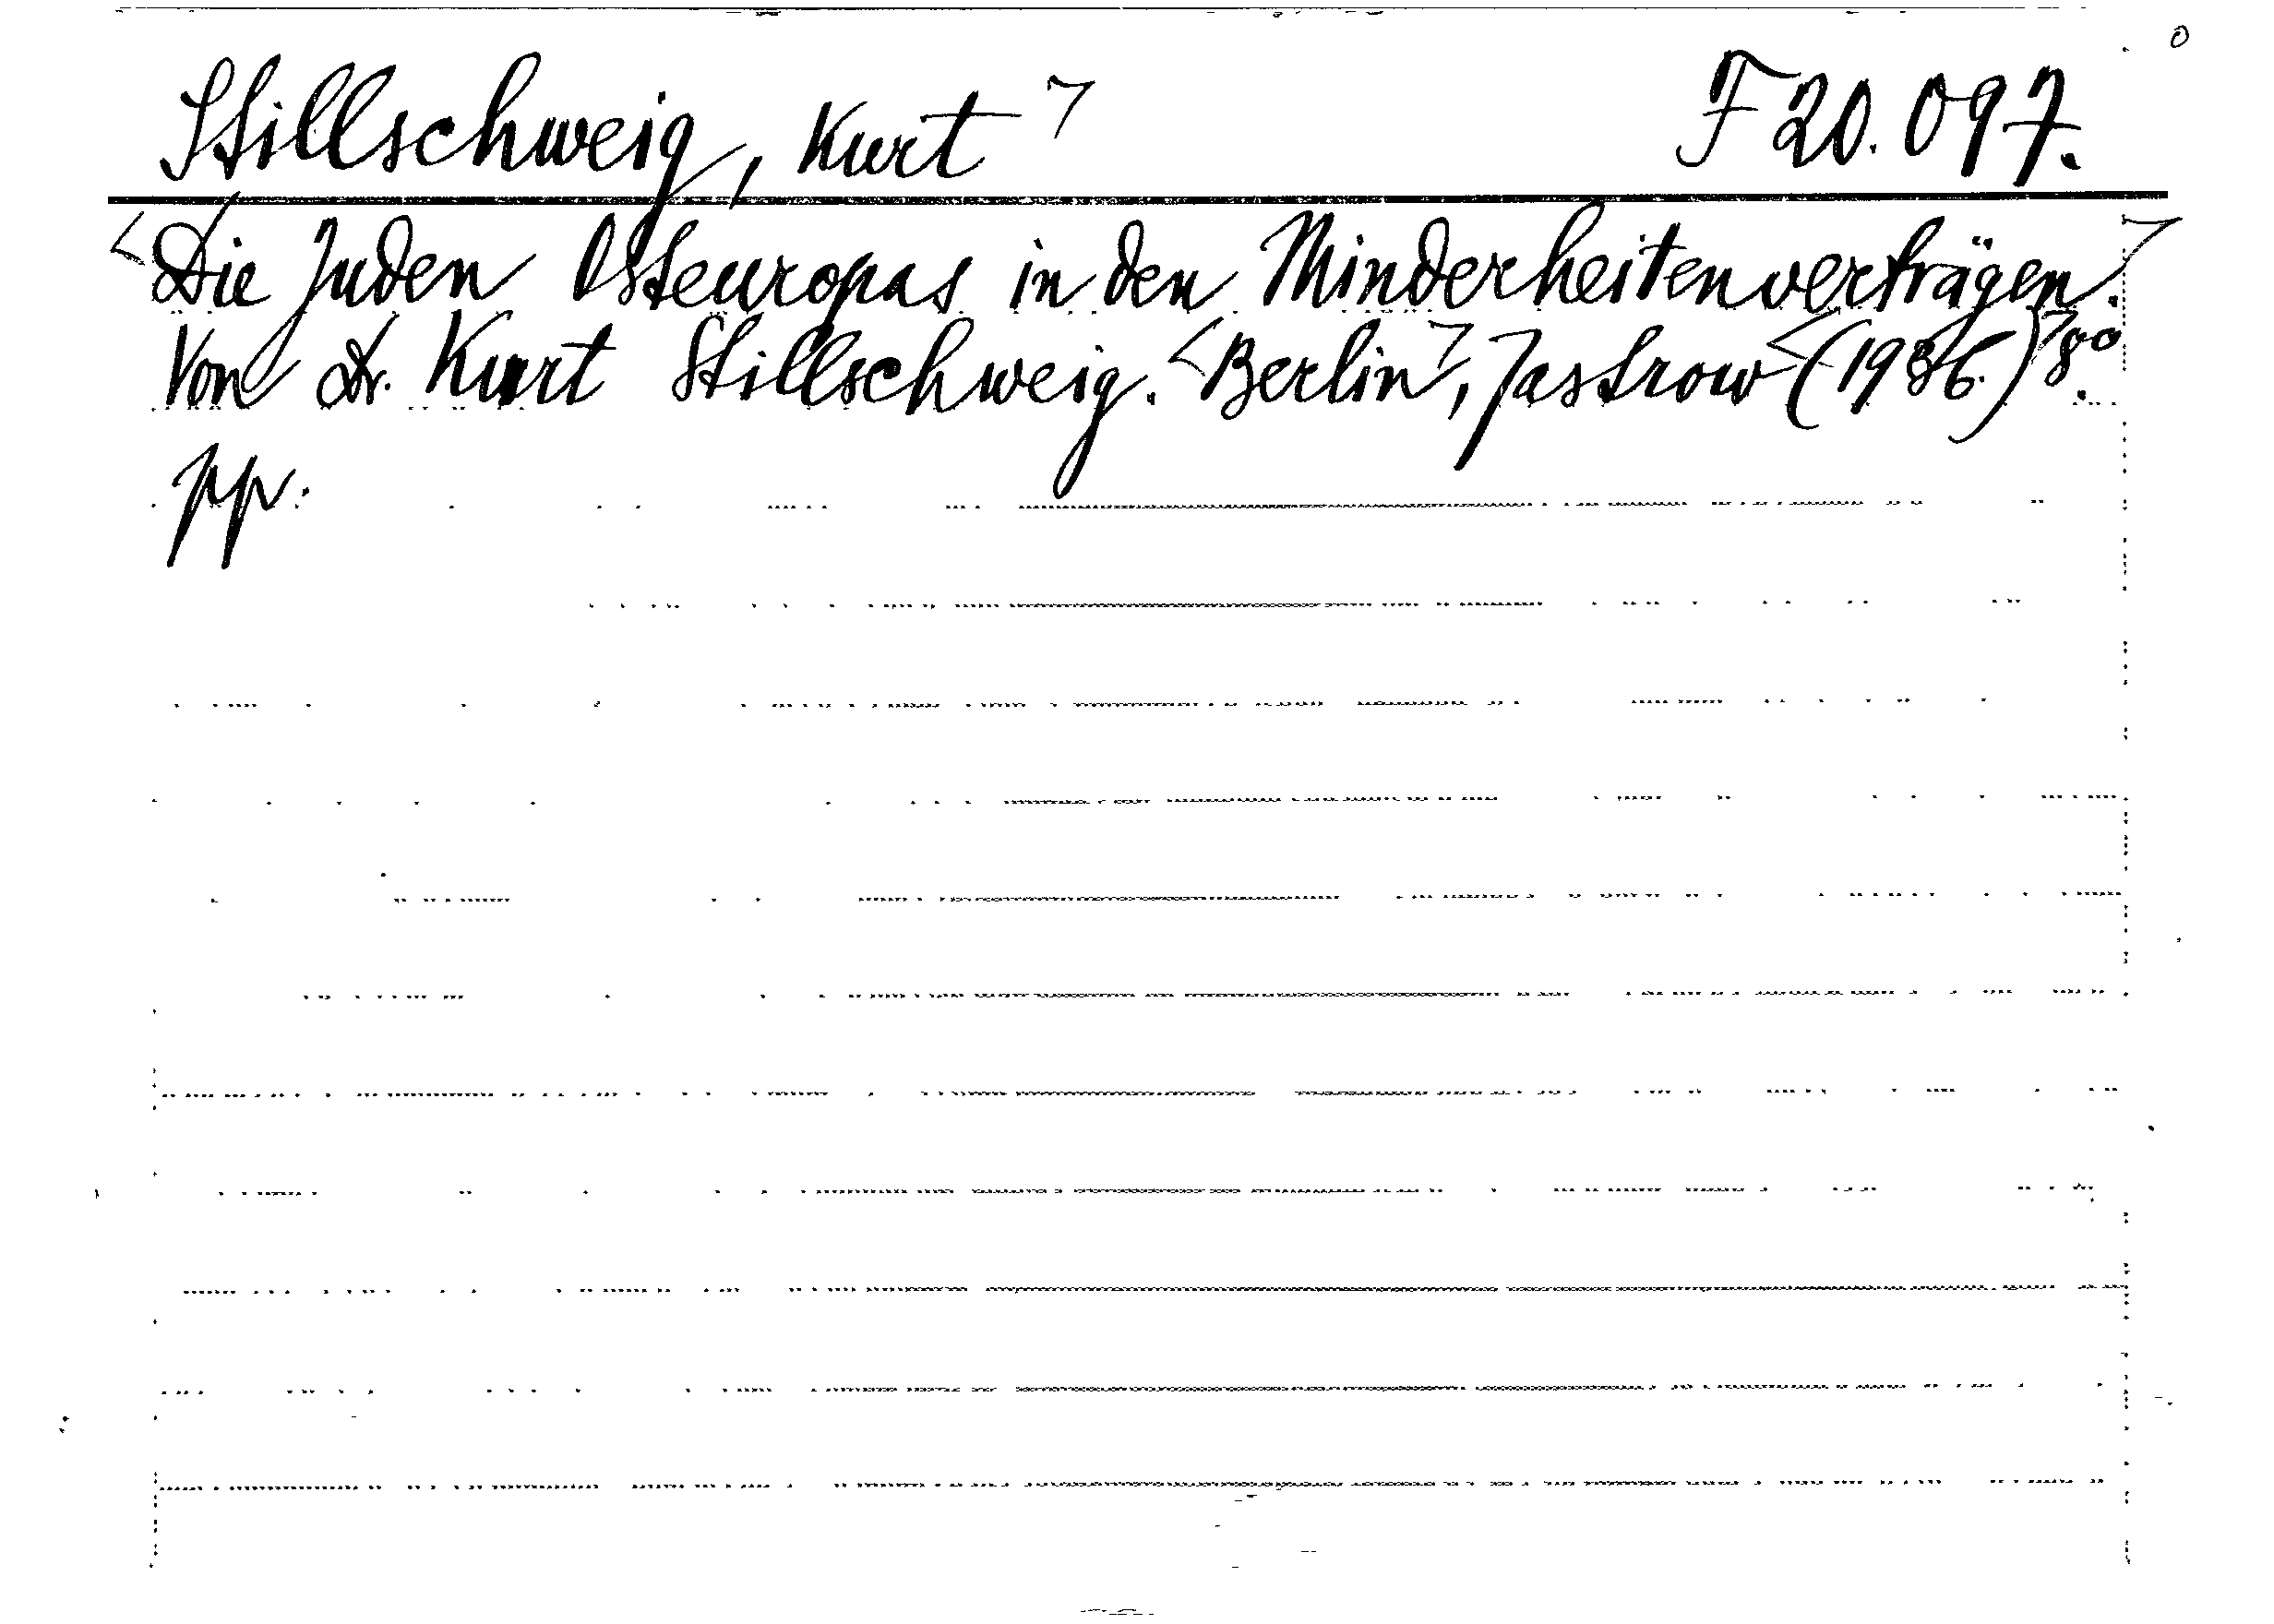 Stillschweig, Kurt F 20.097.
Die Juden Osteuropas in den Minderheitenverträgen.
Von Dr. Kurt Stillschweig. Berlin, Jastrow (1936.) 8°.
pp.